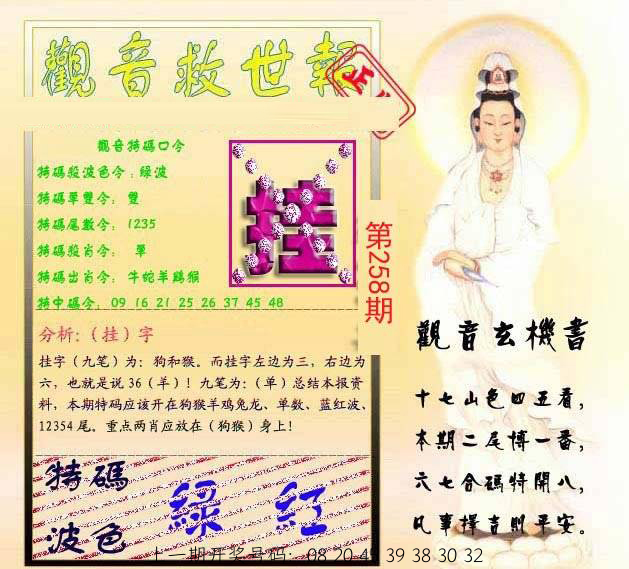 觀音救世報
正
觀音特碼口令
特碼殺波色令：綠波
特碼單雙令： 雙
特碼尾數令： 1235
特碼殺肖令： 單
特碼出肖令： 牛蛇羊鷄猴
特中碼令： 09 16 21 25 26 37 45 48
挂
第258期
分析：（挂）字
挂字（九笔）为：狗和猴。而挂字左边为三，右边为
六，也就是说 36（羊）！九笔为：（单）总结本报资
料，本期特码应该开在狗猴羊鸡兔龙、单数、蓝红波、
12354 尾。重点两肖应放在（狗猴）身上！
特碼
波色
綠 紅
觀音玄機書
十七山色四五看，
本期二尾博一番，
六七合碼特開八，
凡事擇吉則平安。
上一期开奖号码： 08 20 45 39 38 30 32